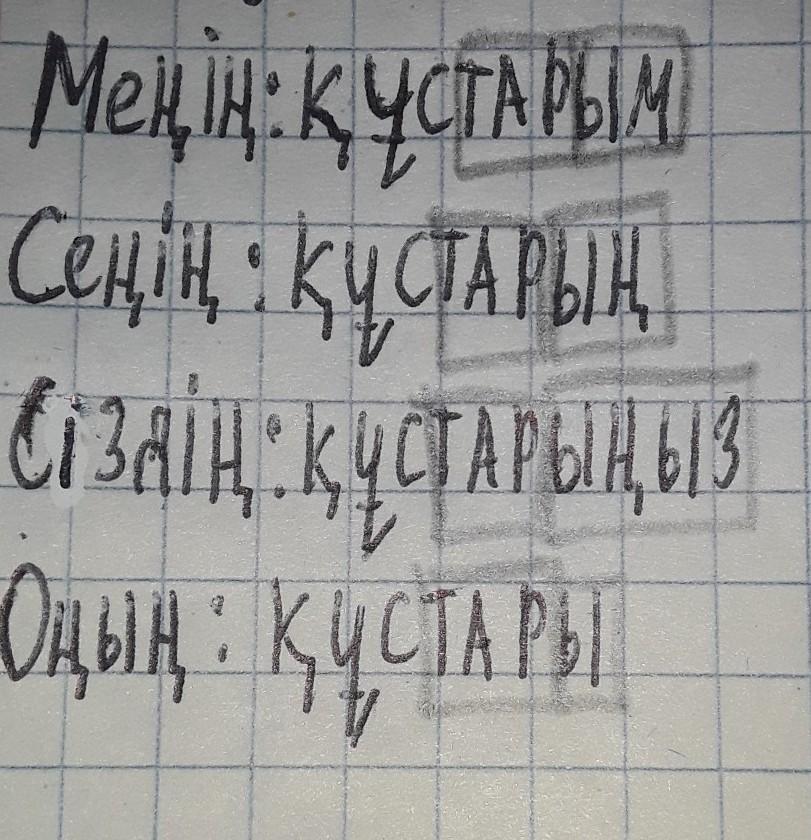 Меңің: құстарым
Сеңің: құстарың
Сіздің: құстарыңыз
Оңың: құстары